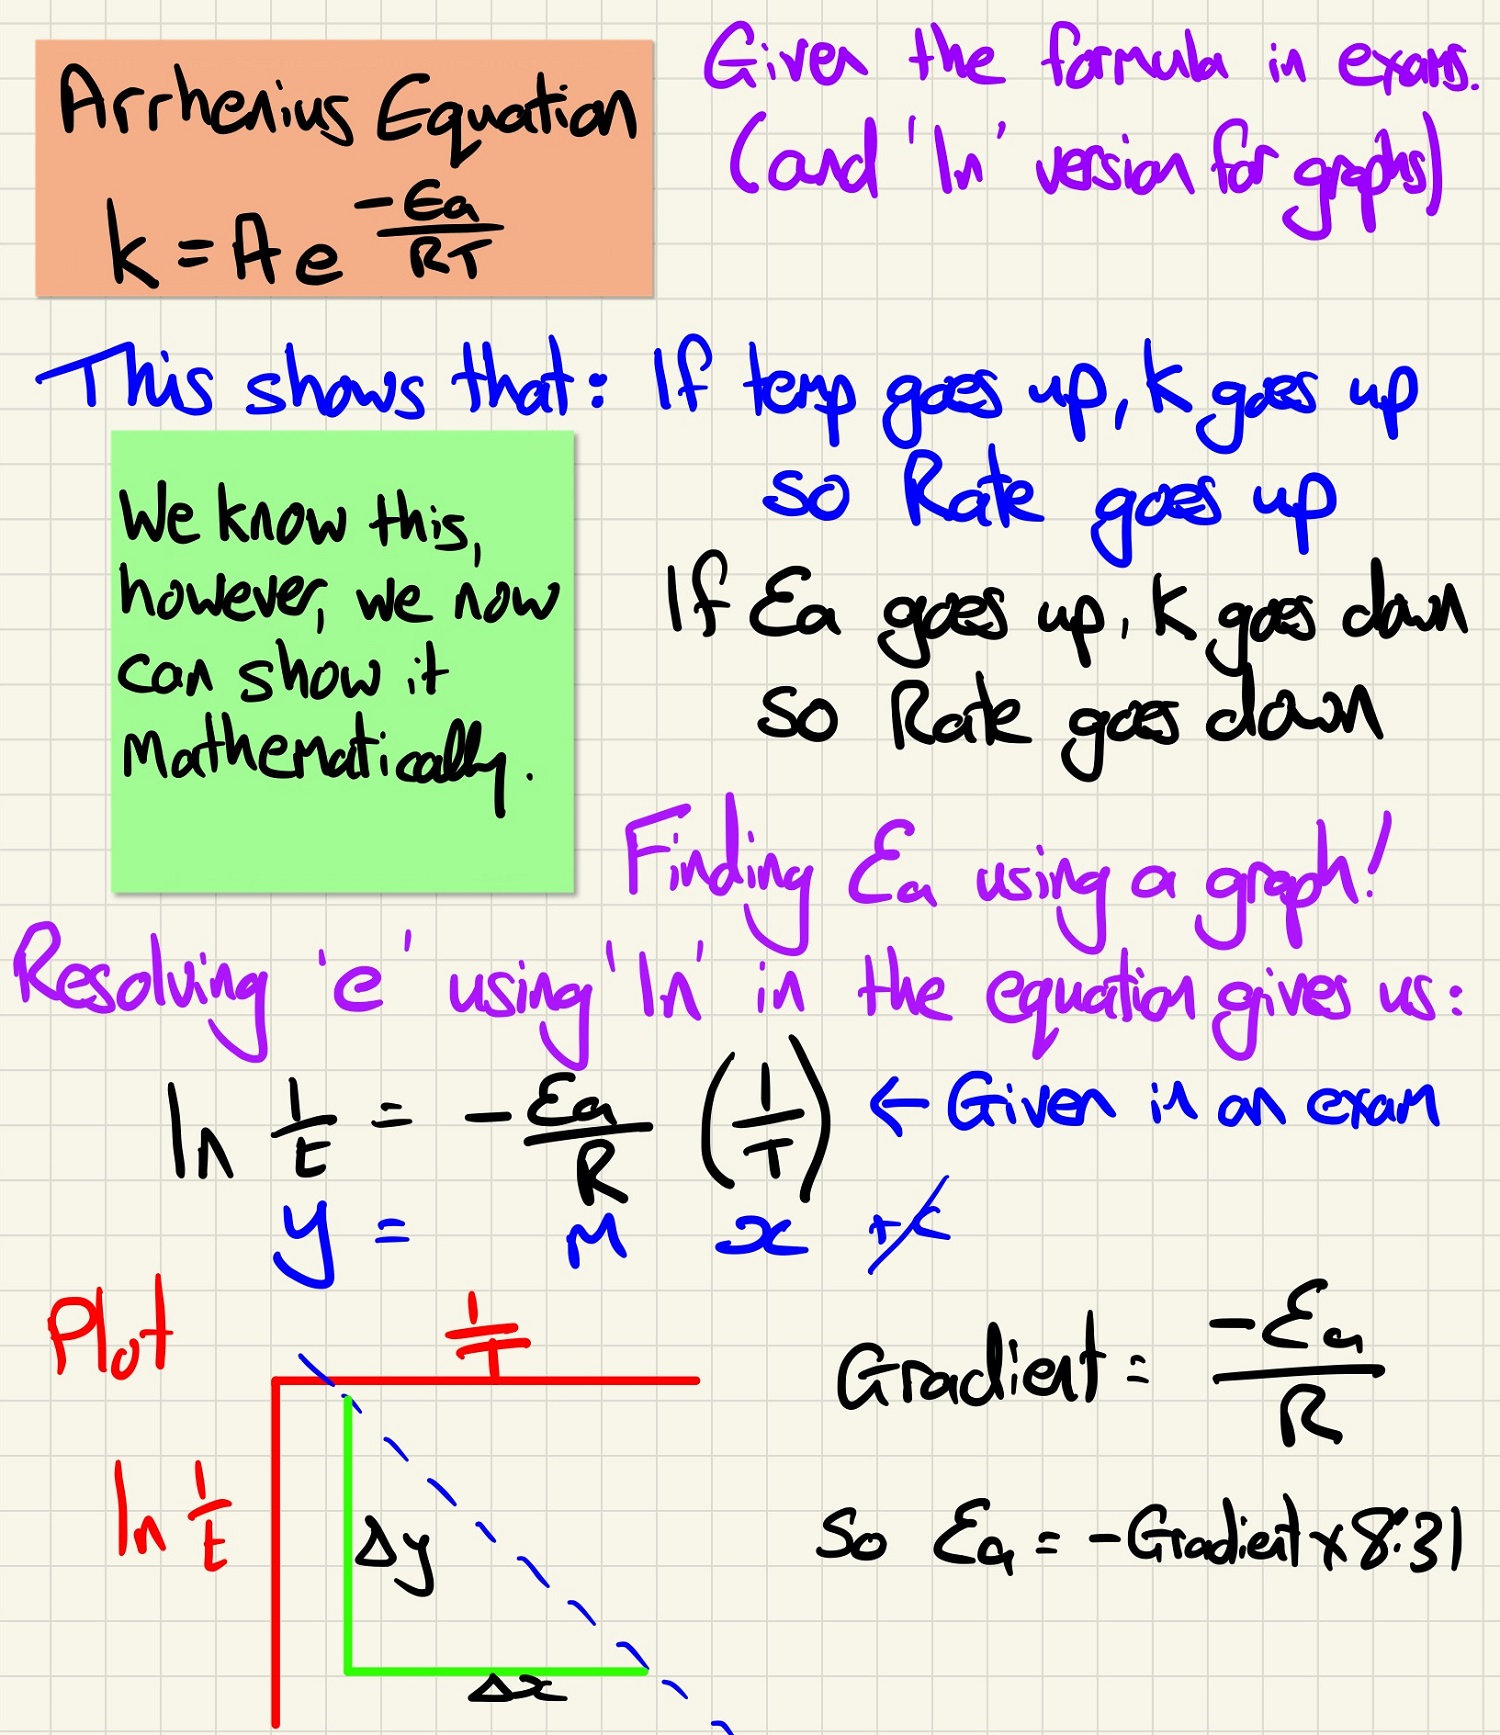 Arrhenius Equation
k = A e^(-Ea/RT)
Given the formula in exams.
(and 'ln' version for graphs)
This shows that: If temp goes up, k goes up
so Rate goes up
If Ea goes up, k goes down
so Rate goes down
We know this,
however, we now
can show it
Mathematically.
Finding Ea using a graph!
Resolving 'e' using 'ln' in the equation gives us:
ln 1/t = -Ea/R (1/T) ← Given in an exam
y = m x +c
Plot
1/T
ln 1/t
Δy
Δx
Gradient = -Ea/R
So Ea = -Gradient x 8.31